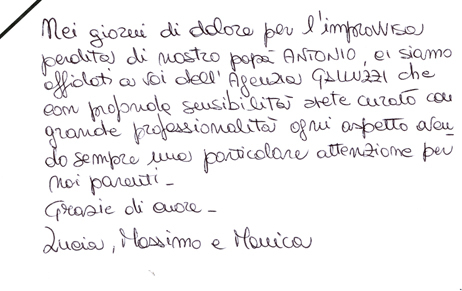 Nei giorni di dolore per l'improvvisa
perdita di nostro papà ANTONIO, ci siamo
affidati a voi dell'Agenzia GALLUZZI che
con profonda sensibilità avete curato con
grande professionalità ogni aspetto aven-
do sempre una particolare attenzione per
noi parenti -
Grazie di cuore -
Lucia, Massimo e Monica